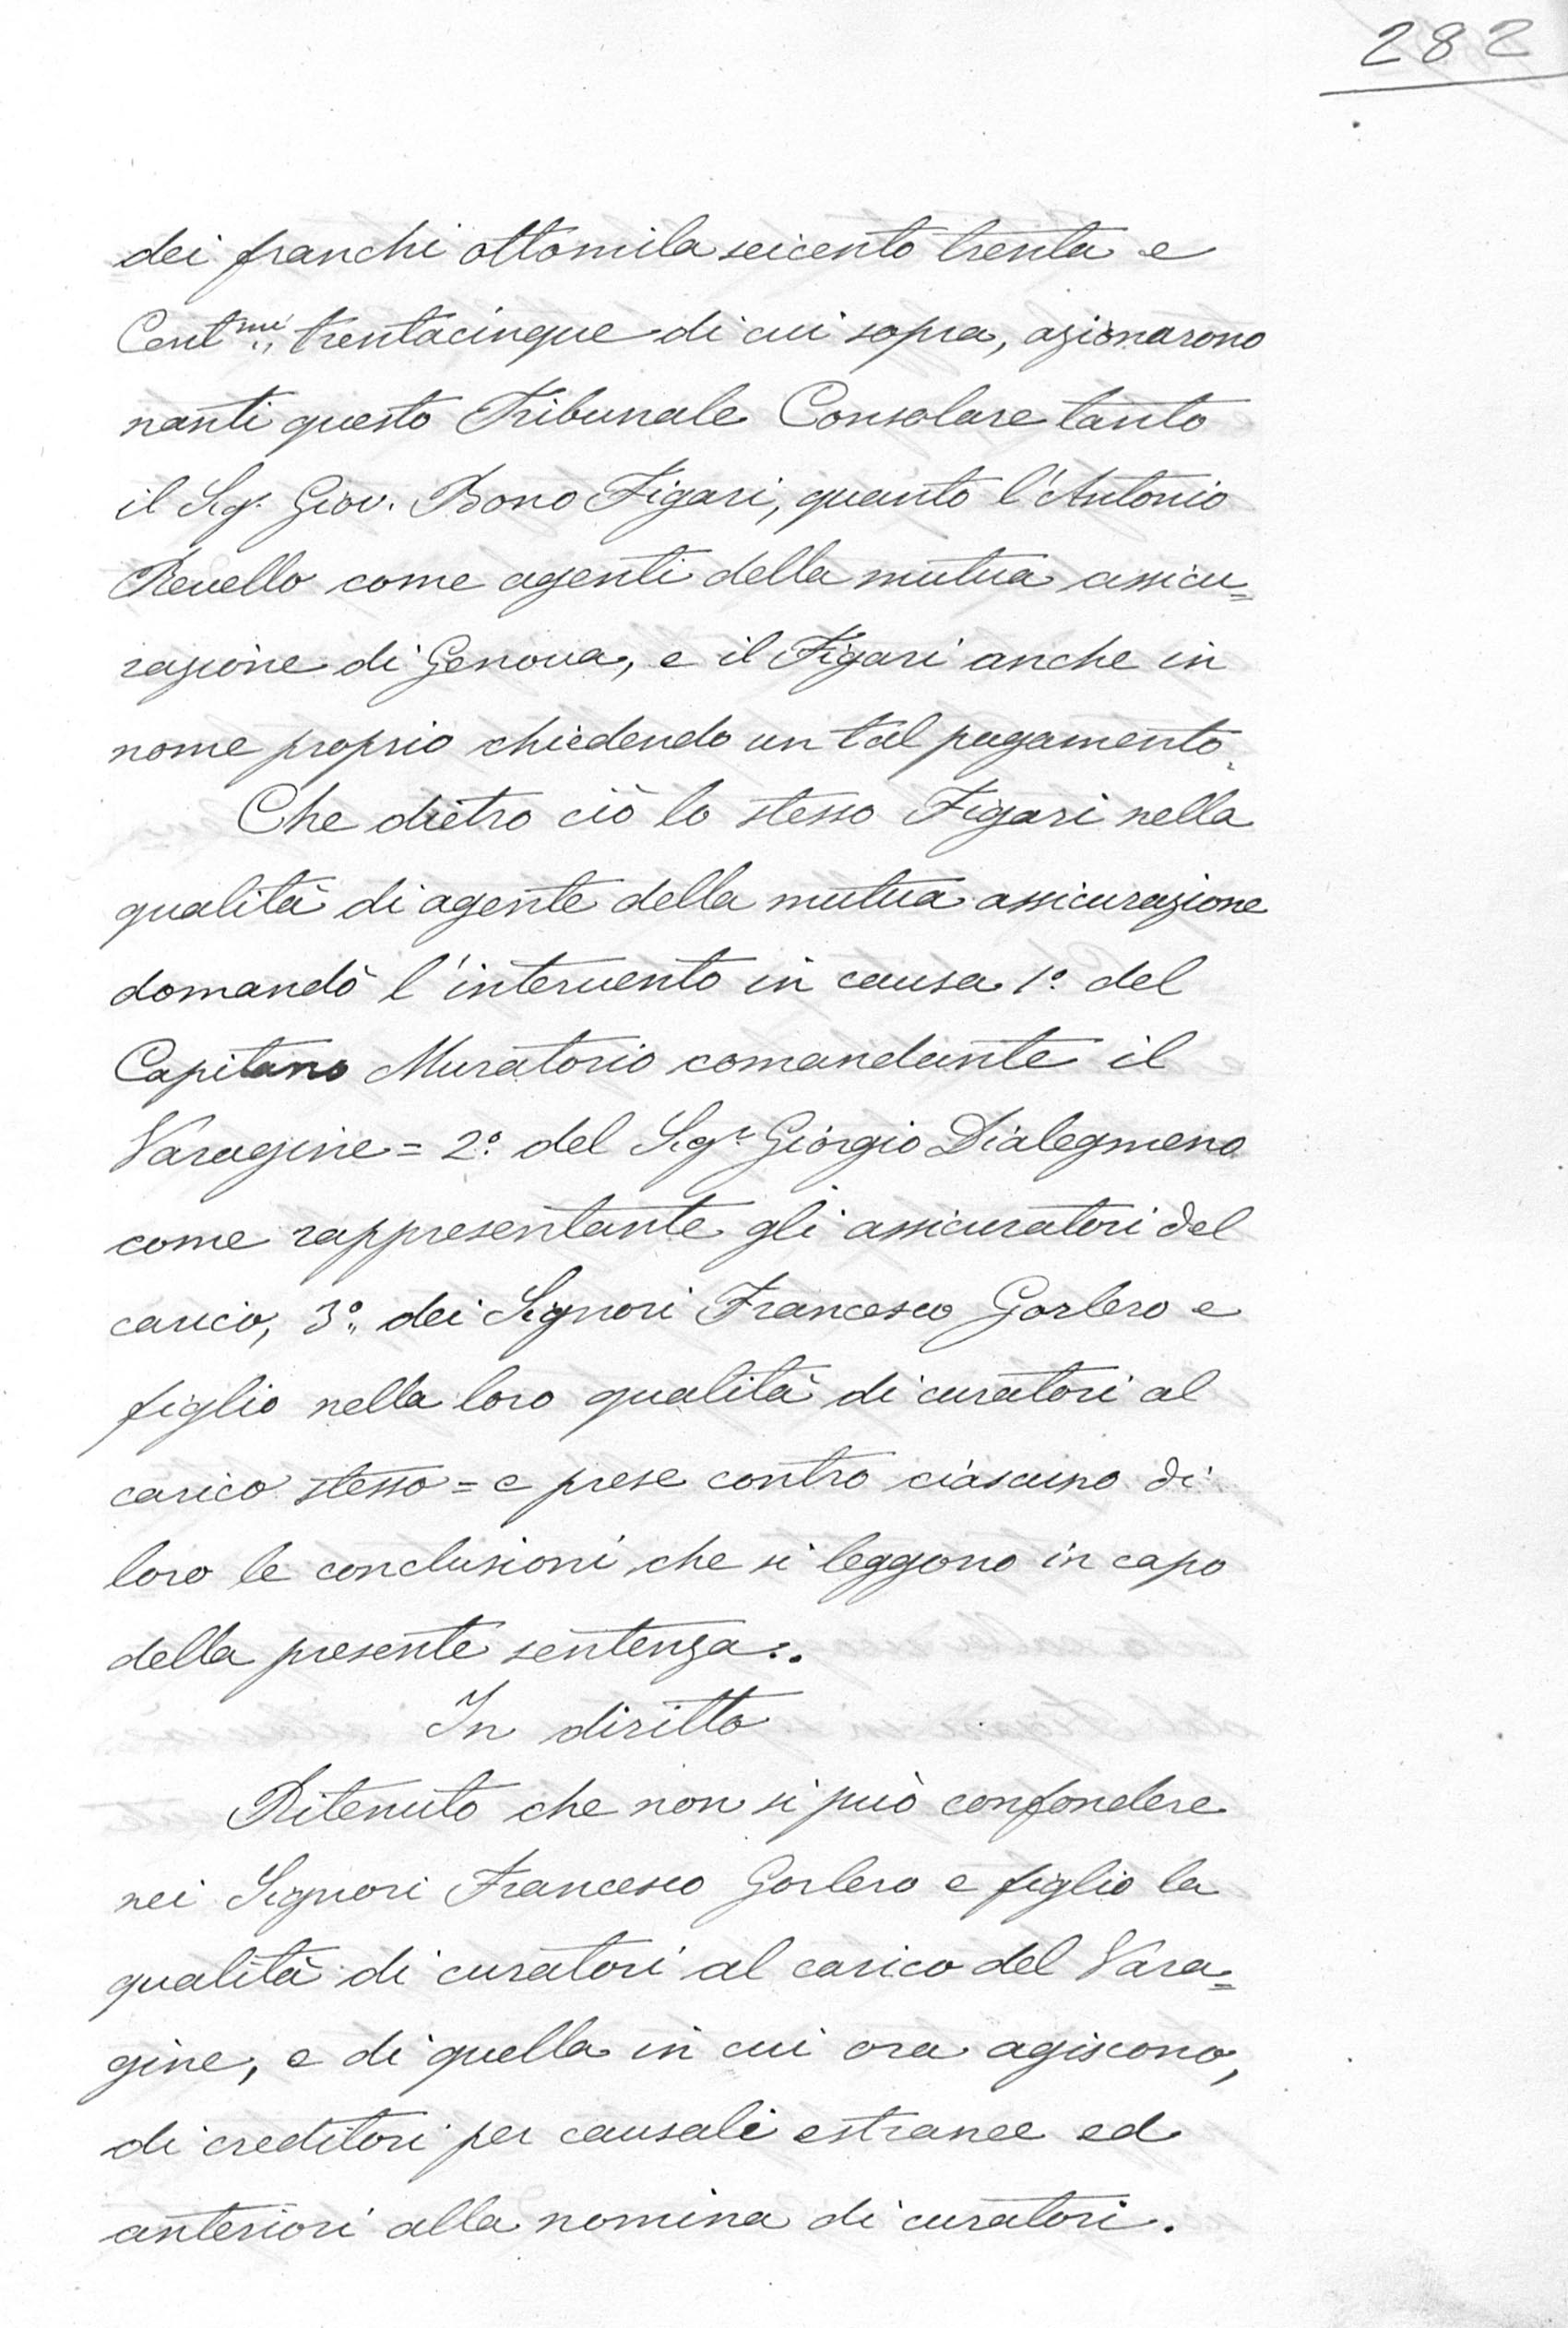 282
dei franchi ottomila seicento trenta e
Cent.mi trentacinque di cui sopra, azionarono
nanti questo Tribunale Consolare tanto
il Sig. Giov. Bono Figari, quanto l'Antonio
Revello come agenti della mutua assicu=
razione di Genova, e il Figari anche in
nome proprio chiedendo un tal pagamento.
Che dietro ciò lo stesso Figari nella
qualità di agente della mutua assicurazione
domandò l'intervento in causa 1º del
Capitano Muratorio comandante il
Varagine = 2º del Sigr Giorgio Dialegmeno
come rappresentante gli assicuratori del
carico, 3º dei Signori Francesco Gorlero e
figlio nella loro qualità di curatori al
carico stesso = e prese contro ciascuno di
loro le conclusioni che si leggono in capo
della presente sentenza..
In diritto
Ritenuto che non si può confondere
nei Signori Francesco Gorlero e figlio la
qualità di curatori al carico del Vara=
gine, e di quella in cui ora agiscono,
di creditori per causali estranee ed
anteriori alla nomina di curatori.